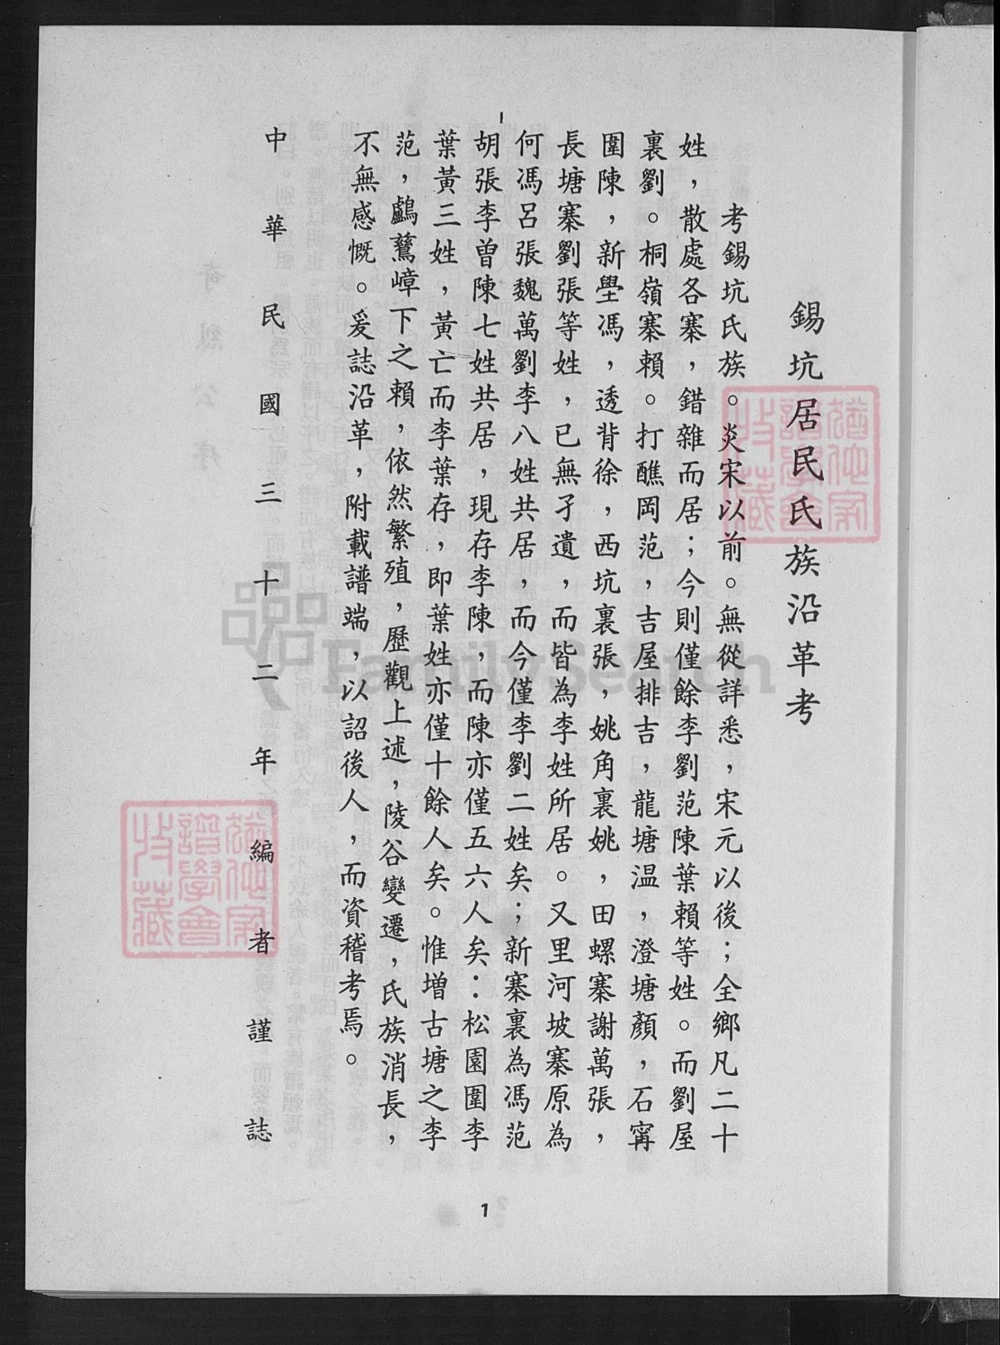 錫坑居民氏族沿革考
考錫坑氏族。炎宋以前。無從詳悉，宋元以後；全鄉凡二十
姓，散處各寨，錯雜而居；今則僅餘李劉范陳葉賴等姓。而劉屋
裏劉。桐嶺寨賴。打醮岡范，吉屋排吉，龍塘温，澄塘顏，石寗
圍陳，新壆馮，透背徐，西坑裏張，姚角裏姚，田螺寨謝萬張，
長塘寨劉張等姓，已無孑遺，而皆為李姓所居。又里河坡寨原為
何馮呂張魏萬劉李八姓共居，而今僅李劉二姓矣；新寨裏為馮范
胡張李曾陳七姓共居，現存李陳，而陳亦僅五六人矣：松園圍李
葉黃三姓，黃亡而李葉存，即葉姓亦僅十餘人矣。惟增古塘之李
范，鸕鶿嶂下之賴，依然繁殖，歷觀上述，陵谷變遷，氏族消長，
不無感慨。爰誌沿革，附載譜端，以詔後人，而資稽考焉。
中華民國三十二年編者謹誌
1
FamilySearch
譜學會
特藏
譜學會
特藏